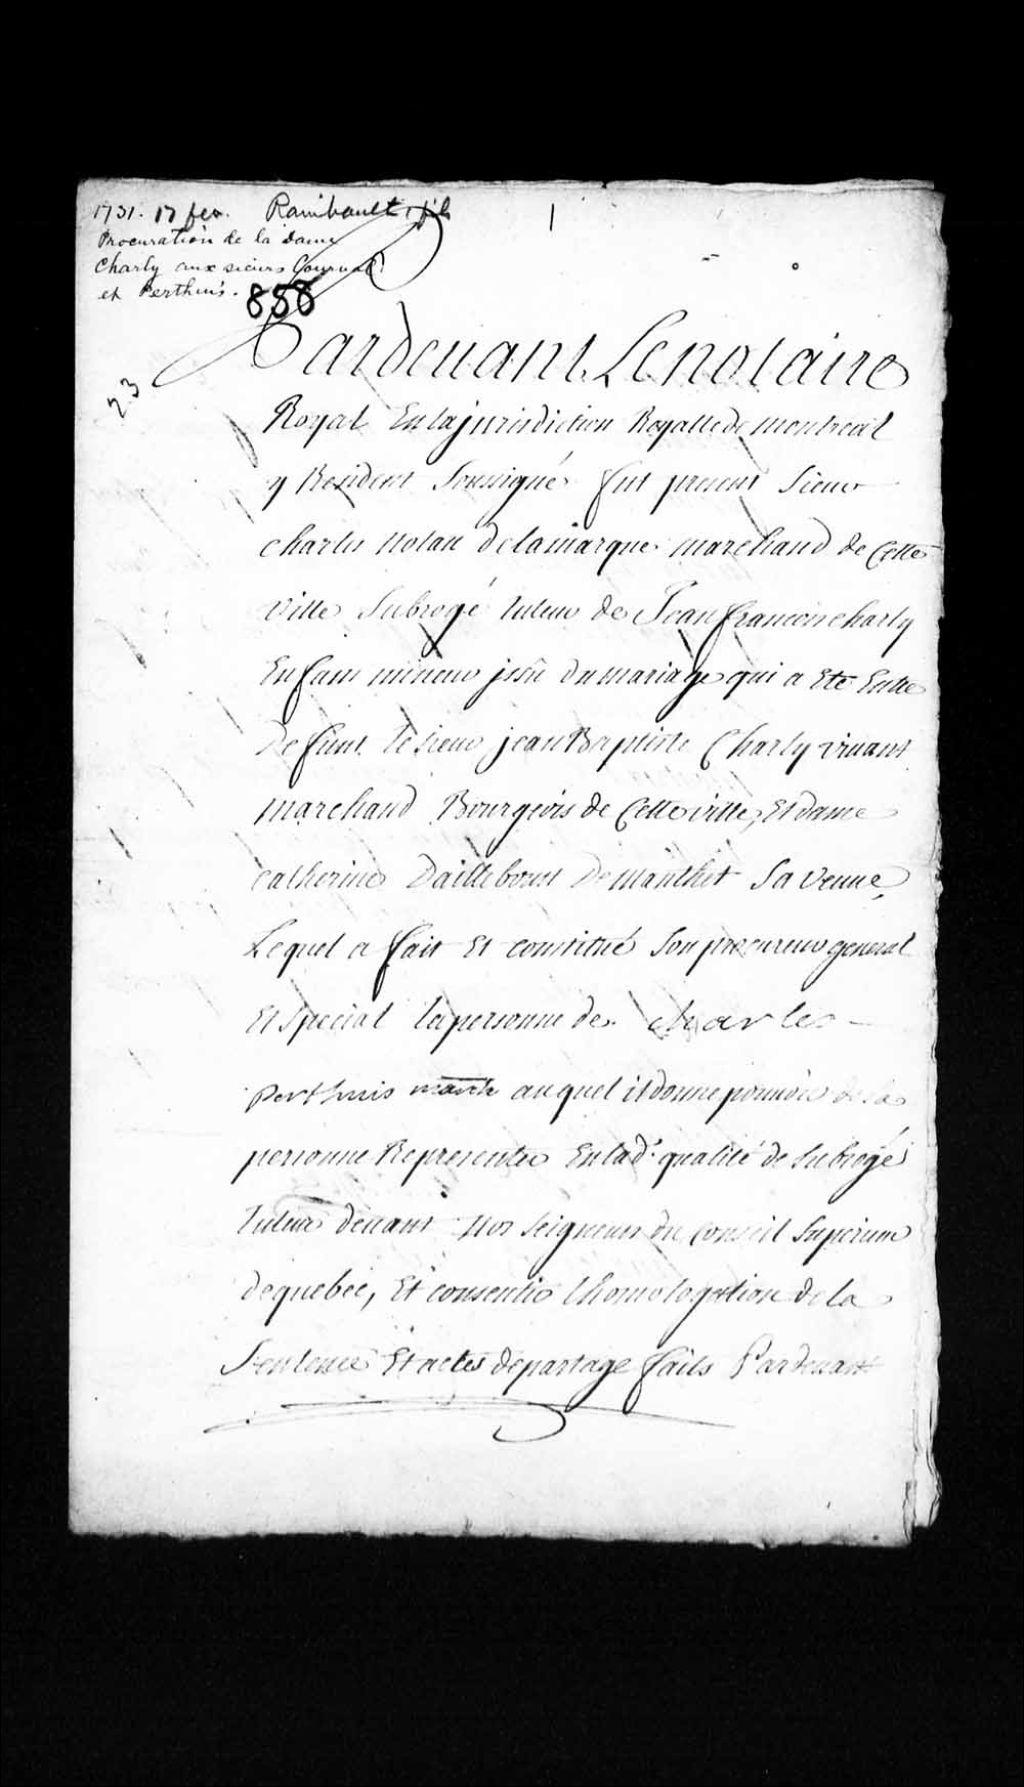 1731. 17 fev. Raimbault, fils
Procuration de la dame
Charly aux sieurs Gournal
et Perthuis.
858
23
Pardeuant Le notaire
Royal En la jurisdiction Royalle de montreal
y Resident Soussigné fut present Sieur
charles nolan delamarque marchand de Cette
ville Subrogé tuteur de Jean francois charly
Enfant mineur issu du mariage qui a Eté Entre
deffunt le sieur jean Baptiste Charly viuant
marchand Bourgeois de Cette ville, Et dame
catherine Daillebout De manthet Sa veuue,
Lequel a fait Et constitué Son procureur general
Et special la personne de charles
Perthuis march auquel il donne pouuoir de sa
personne Representer En lad. qualité de Subrogé
tuteur deuant Nos Seigneurs du Conseil Superieur
de quebec, Et consentir l'homologation de la
Sentence Et actes de partage faits Pardeuant